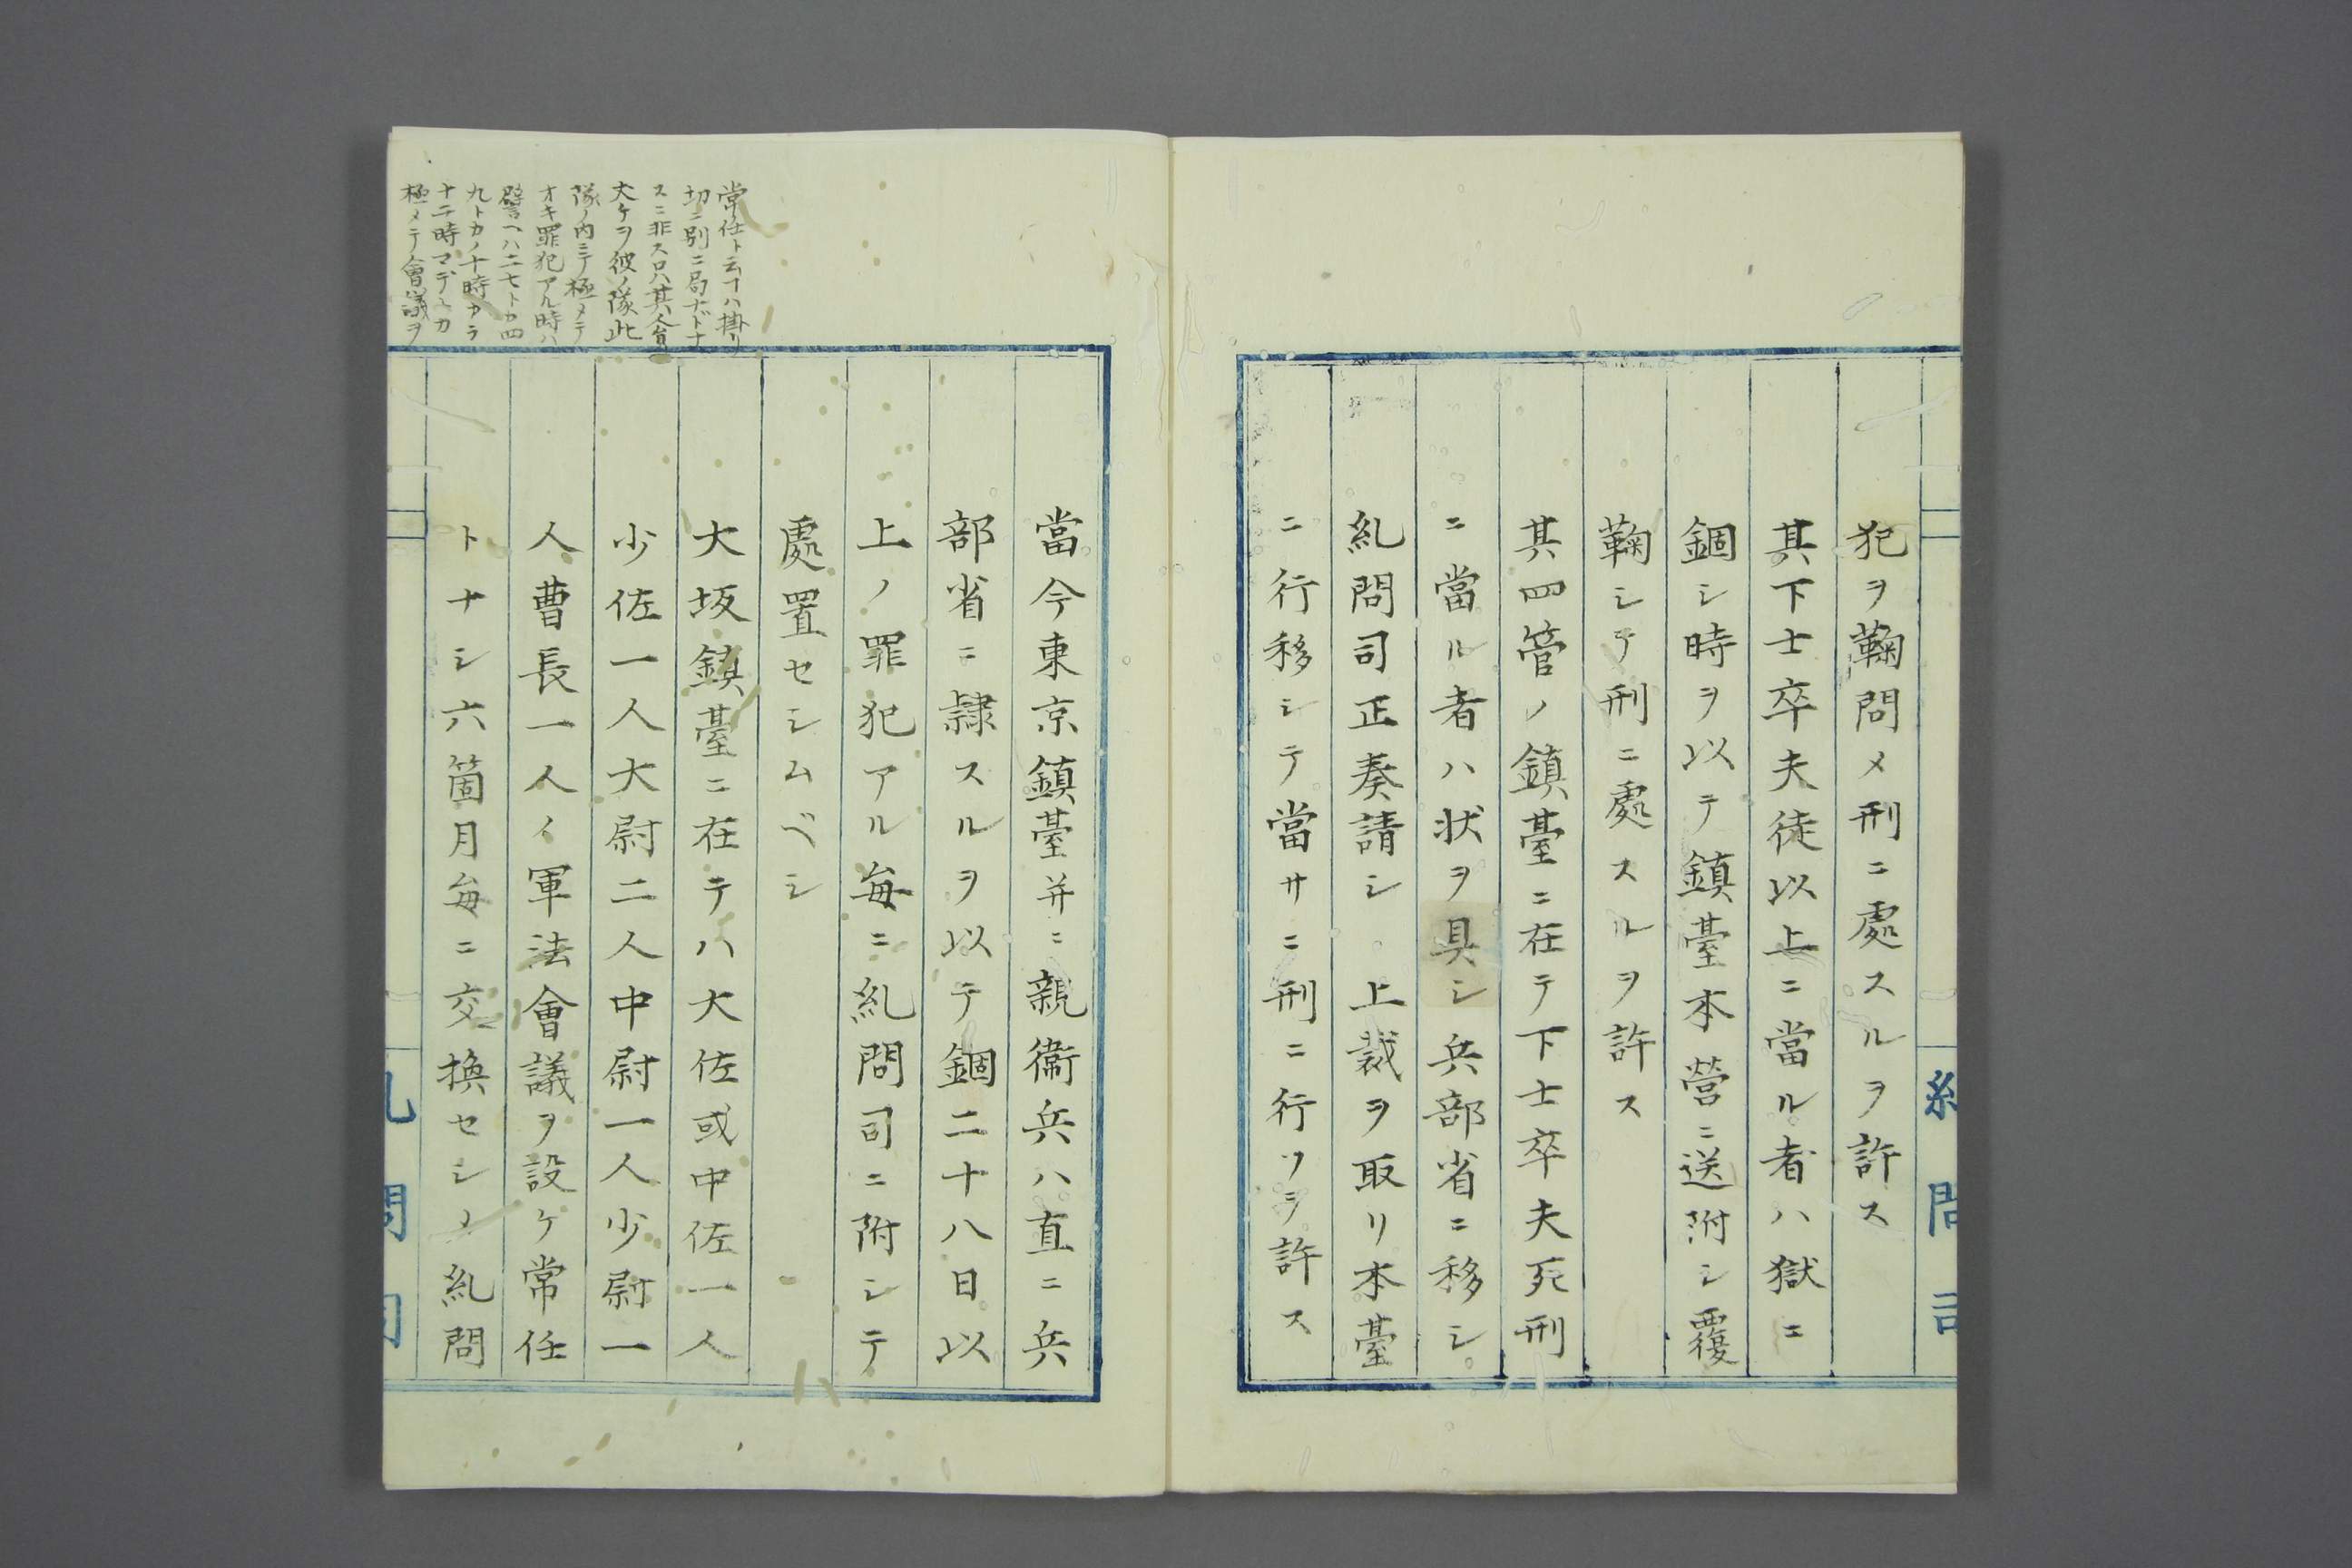 糺問司
犯ヲ鞠問メ刑ニ處スルヲ許ス
其下士卒夫徒以上ニ當ル者ハ獄ニ
錮シ時ヲ以テ鎮臺本營ニ送附シ覆
鞠シテ刑ニ處スルヲ許ス
其四管ノ鎮臺ニ在テ下士卒夫死刑
ニ當ル者ハ状ヲ具シ兵部省ニ移シ
糺問司正奏請シ 上裁ヲ取リ本臺
ニ行移シテ當サニ刑ニ行フヲ許ス
當今東京鎮臺并ニ親衞兵ハ直ニ兵
部省ニ隷スルヲ以テ錮二十八日以
上ノ罪犯アル毎ニ糺問司ニ附シテ
處置セシムベシ
大坂鎮臺ニ在テハ大佐或中佐一人
少佐一人大尉二人中尉一人少尉一
人曹長一人ノ軍法會議ヲ設ケ常任
トナシ六箇月毎ニ交換セシメ糺問
常任ト云フハ掛リ
切ニ別ニ局ナドナ
スニ非ス只其人員
大ケヲ彼ノ隊此
隊ノ内ニテ極メテ
オキ罪犯アル時ハ
譬ヘハ二七トカ四
九トカノ十時カラ
十二時マデトカ
極メテ會議ヲ
糺問司